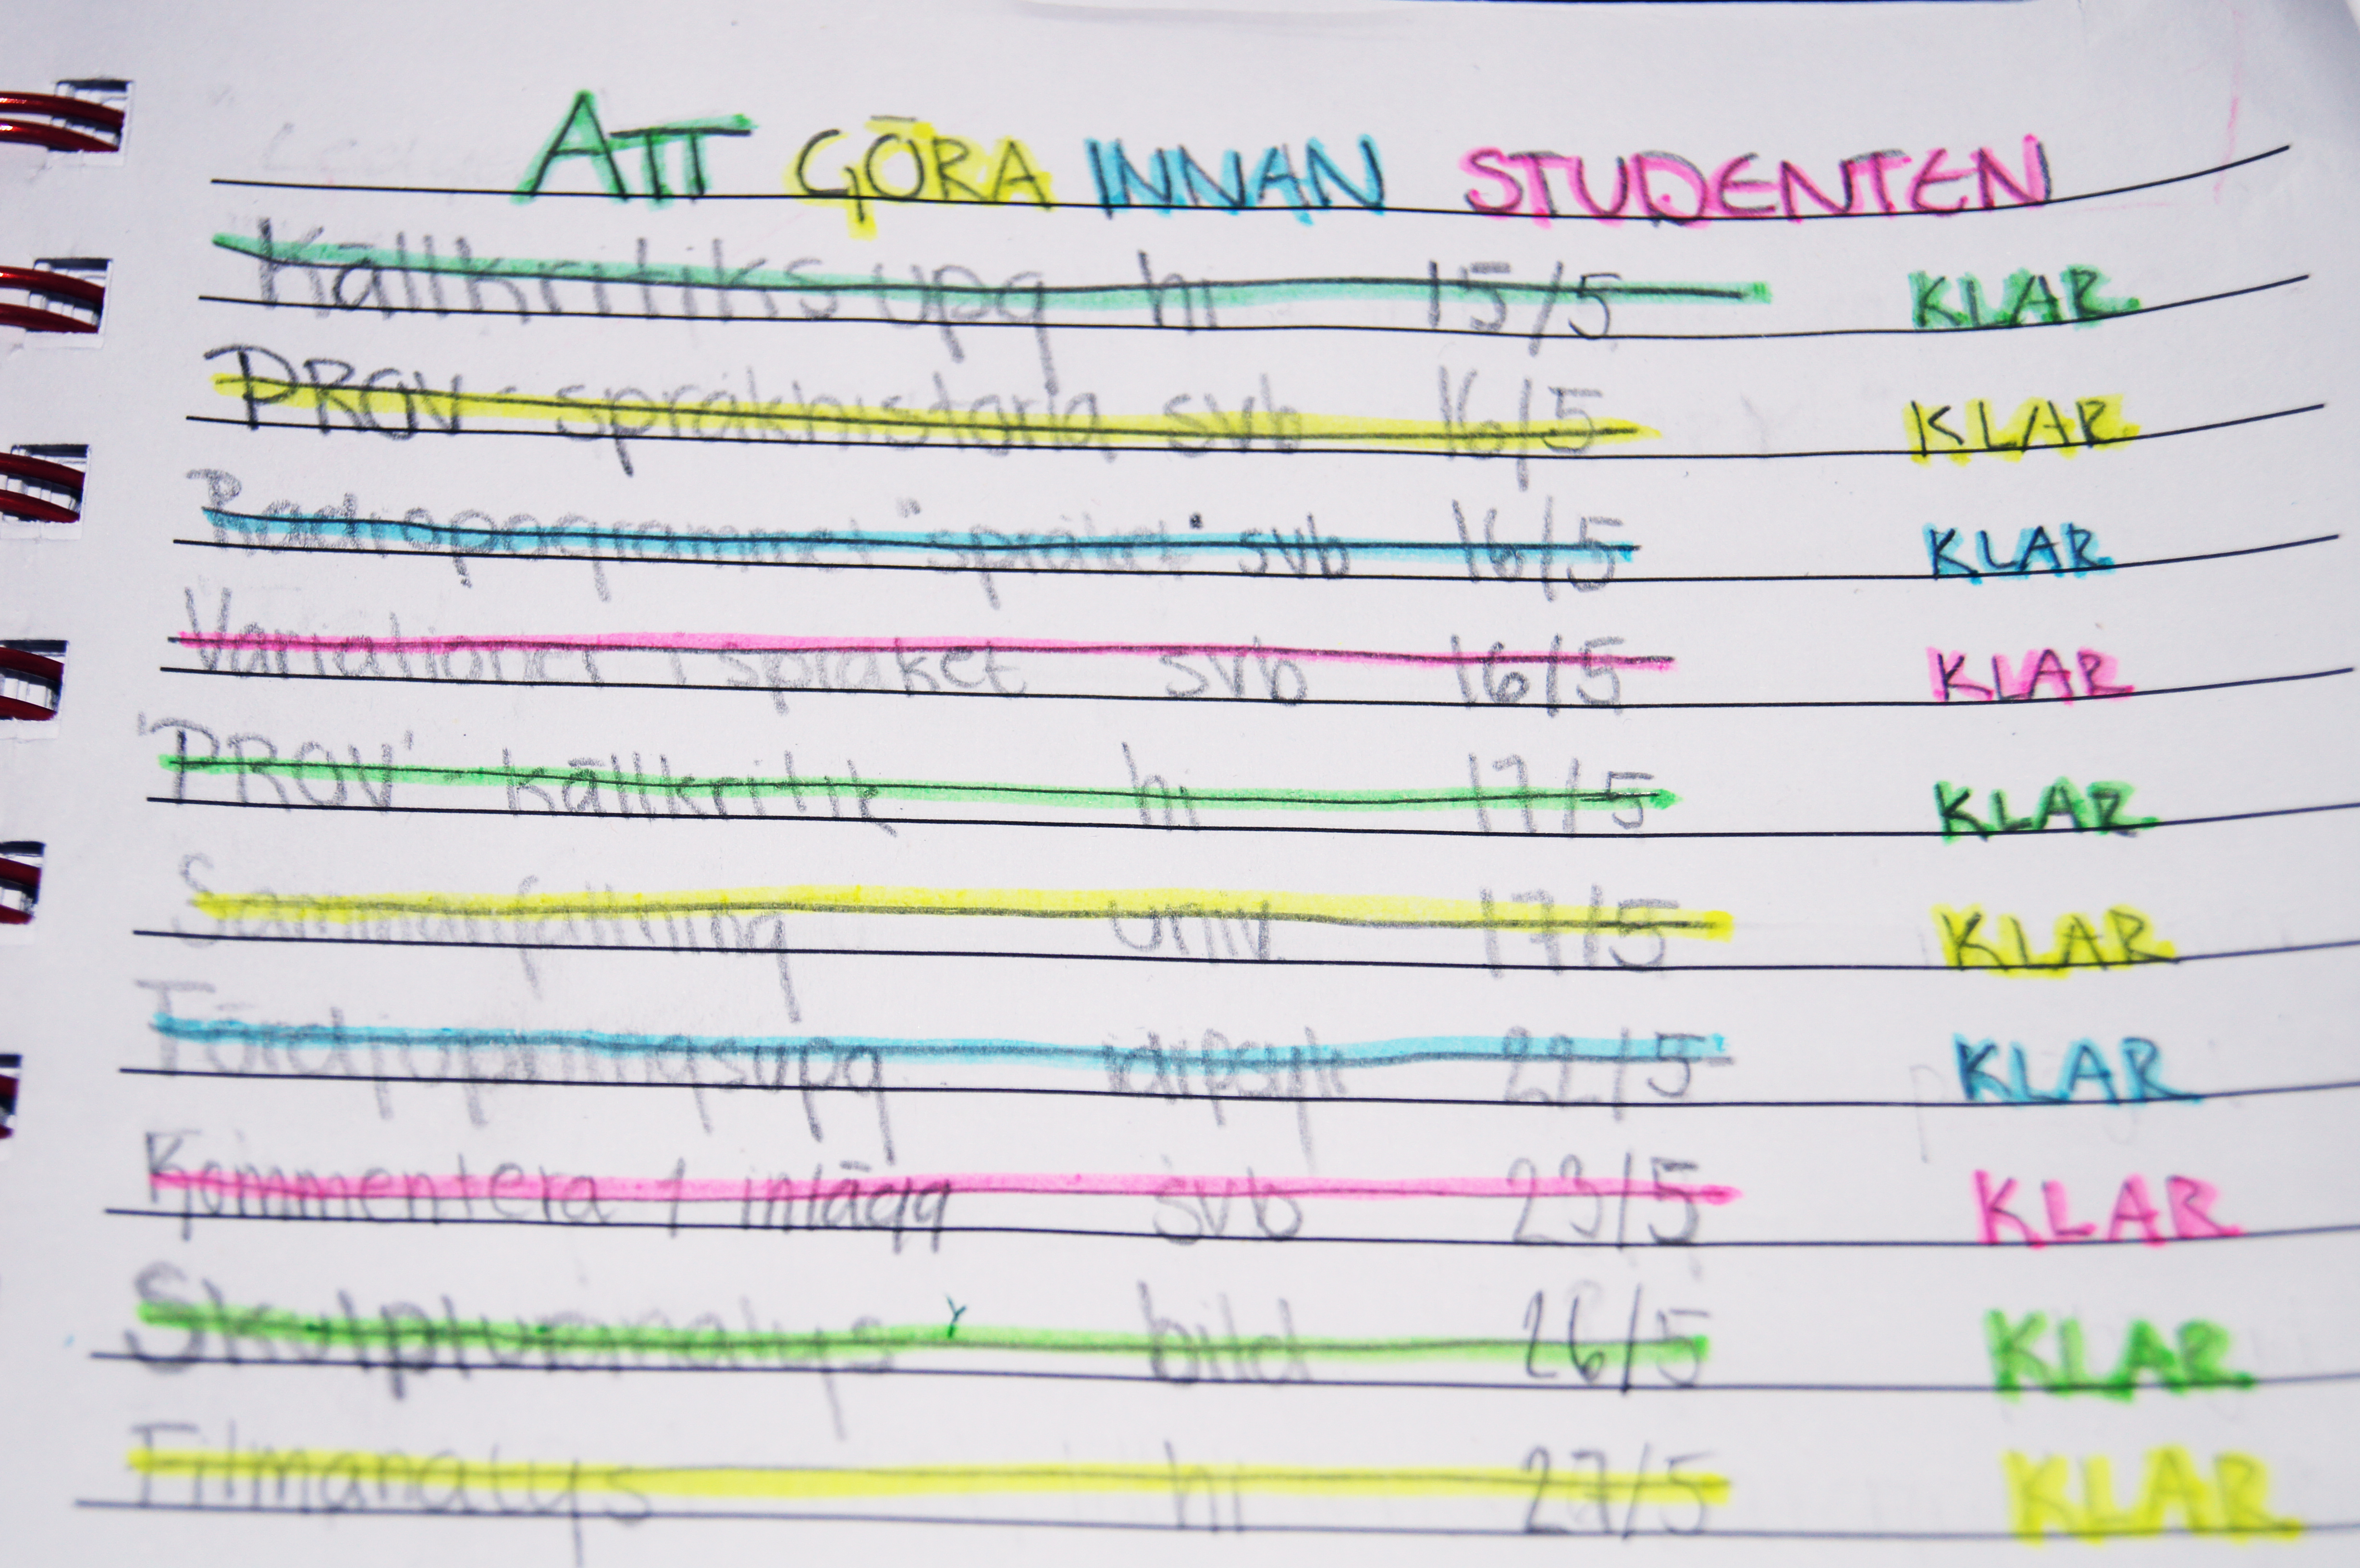 ATT GÖRA INNAN STUDENTEN
Källkritiksupg hi 15/5 KLAR
PROV - språkhistoria svb 16/5 KLAR
Radiopogrammet "språket" svb 16/5 KLAR
Variationer i språket svb 16/5 KLAR
PROV - källkritik hi 17/5 KLAR
Sammanfattning univ. 17/5 KLAR
Fördjupningsupg idrpsyk 22/5 KLAR
Kommentera 1 inlägg svb 23/5 KLAR
Skulpturanalys bild 26/5 KLAR
Filmanalys hi 27/5 KLAR